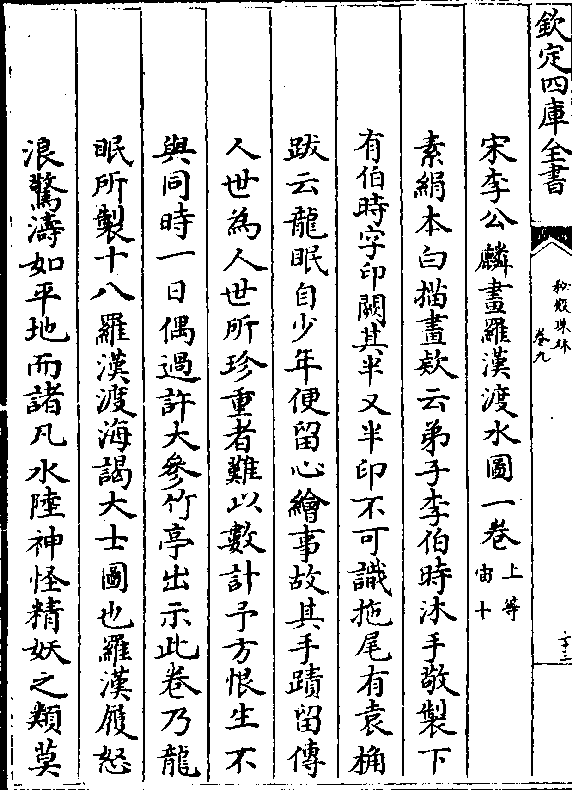 欽定四庫全書
秘殿珠林
卷九
宋李公麟畫羅漢渡水圖一卷 上等
宙十
素絹本白描畫欵云弟子李伯時沐手敬製下
有伯時字印闕其半又半印不可識拖尾有袁桷
跋云龍眠自少年便留心繪事故其手蹟留傳
人世為人世所珍重者難以數計予方恨生不
與同時一日偶過許大參竹亭出示此卷乃龍
眠所製十八羅漢渡海謁大士圖也羅漢履怒
浪驚濤如平地而諸凡水陸神怪精妖之類莫